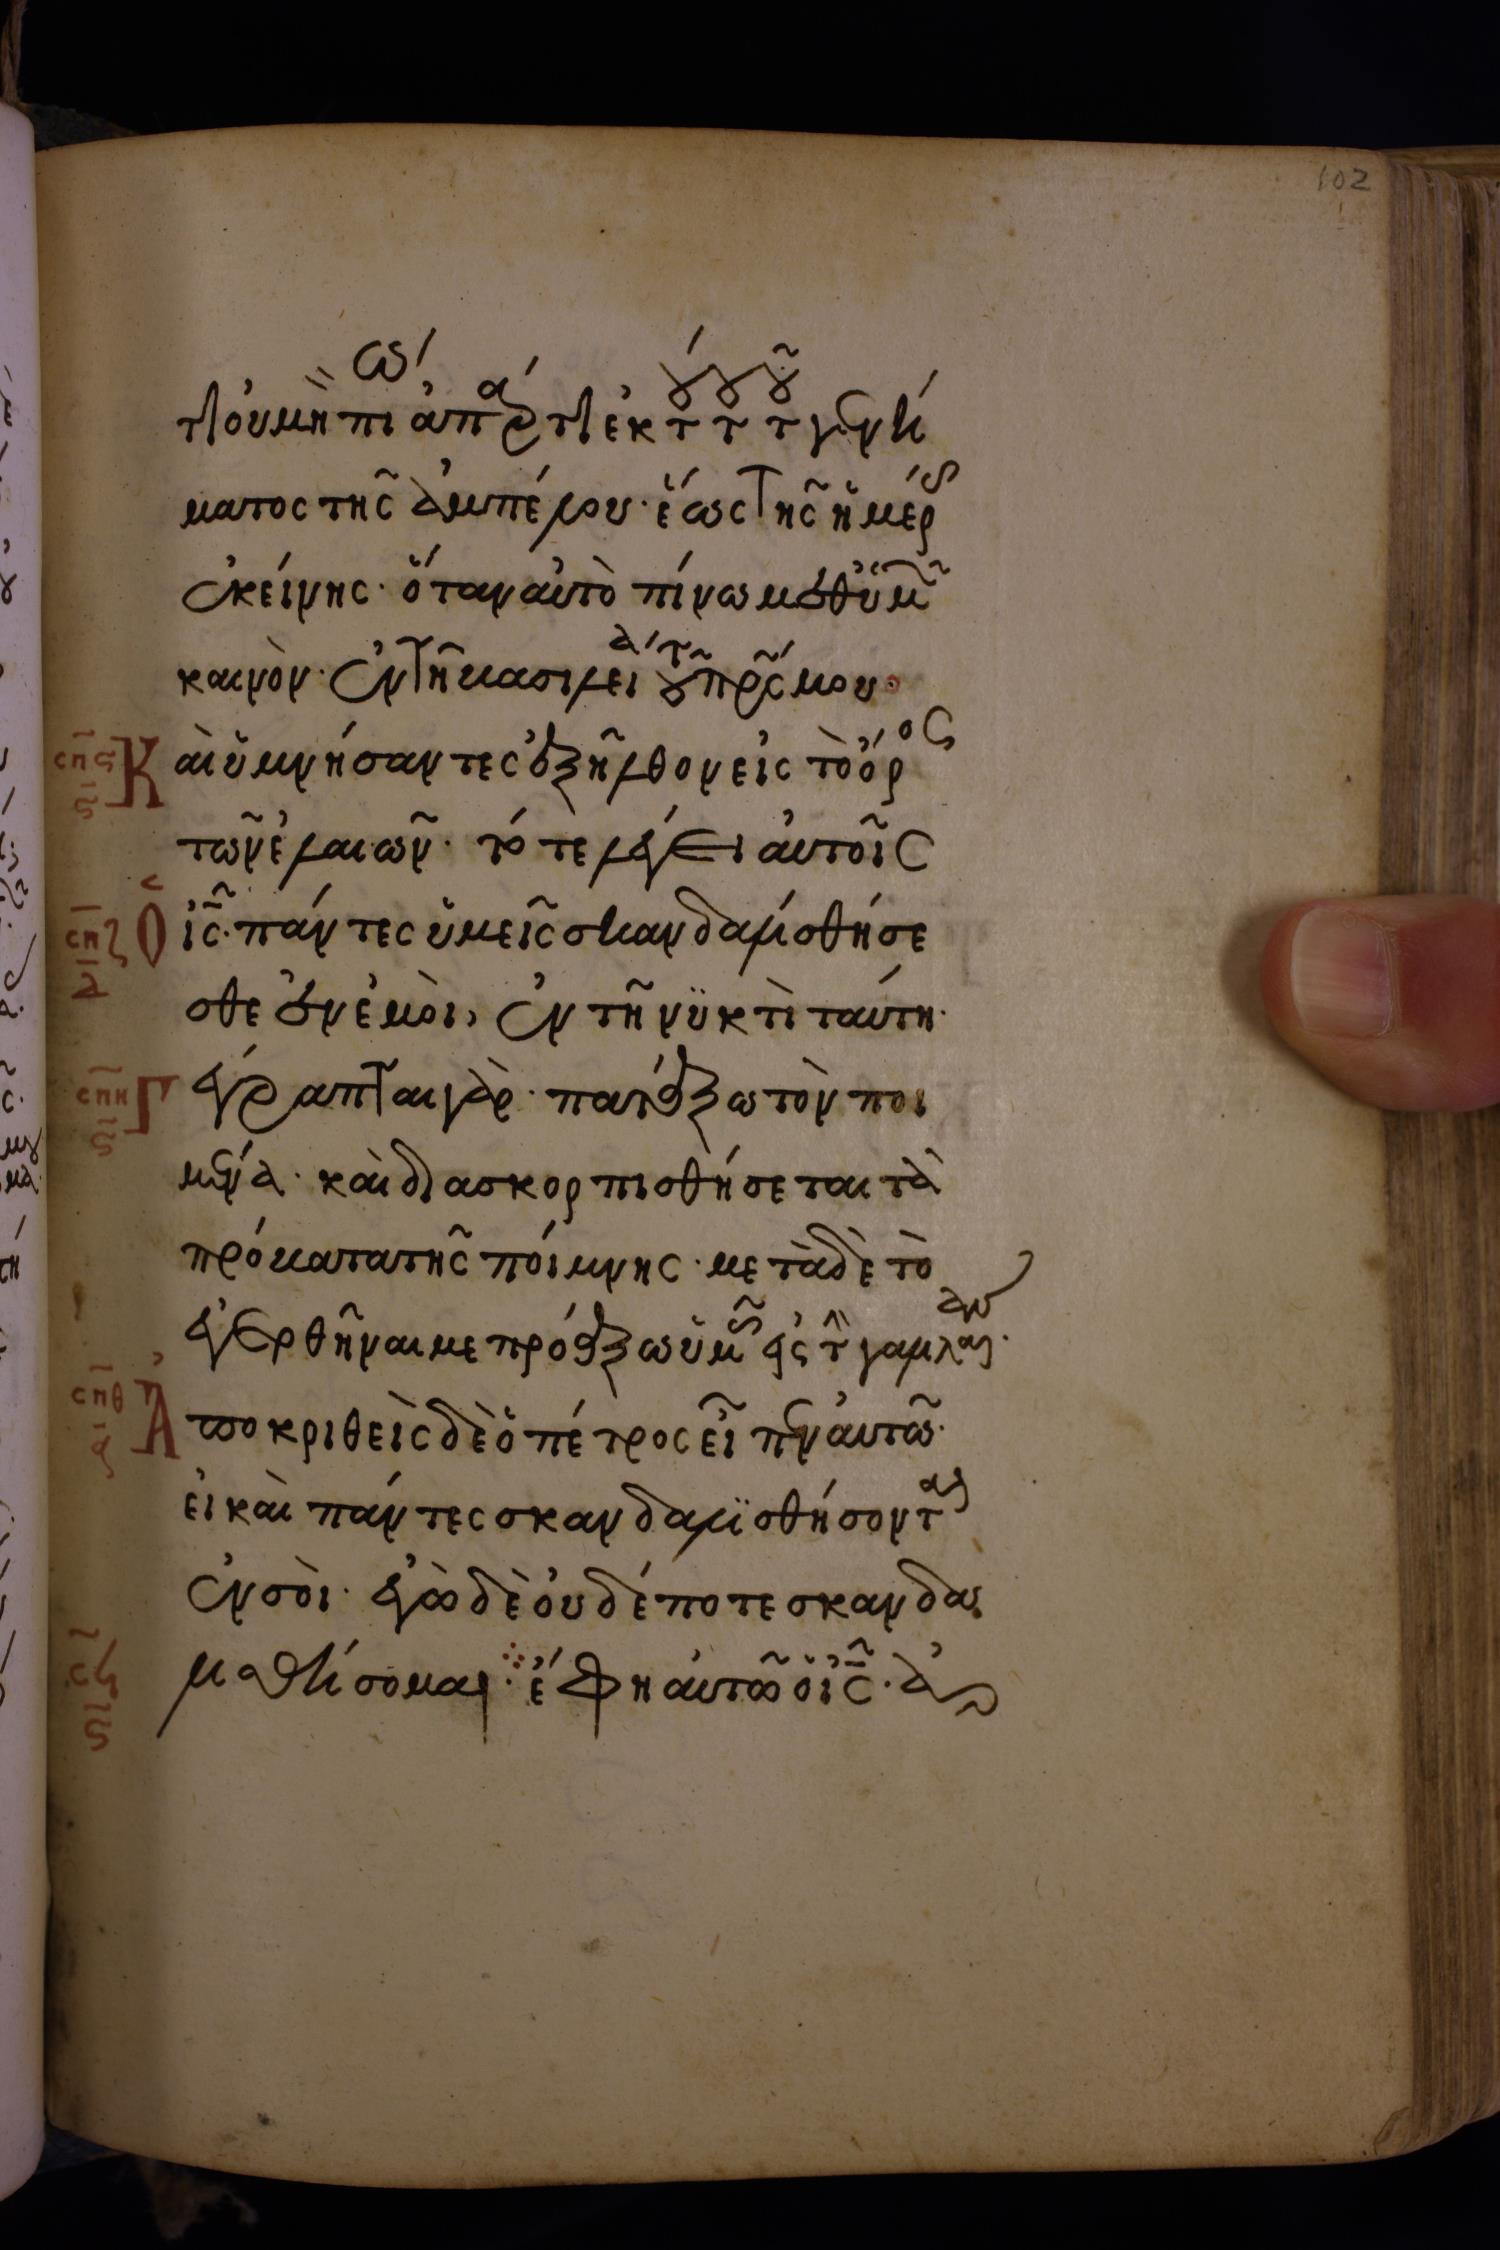 102
τι οὐ μὴ πίω ἀπάρτι ἐκ τούτου τοῦ γεννή
ματος τῆς ἀμπέλου· ἕως τῆς ἡμέρας
ἐκείνης· ὅταν αὐτὸ πίνω μεθ' ὑμῶν
καινὸν· ἐν τῆ βασιλεία τοῦ πρς μου·
σπς ς Καὶ ὑμνήσαντες ἐξῆλθον εἰς τὸ ὄρος
τῶν ἐλαιῶν· τότε λέγει αὐτοῖς
σπζ δ Ὁ ις· πάντες ὑμεῖς σκανδαλισθήσε
σθε ἐν ἐμοὶ, ἐν τῆ νϋκτὶ ταύτη·
σπη ς Γέγραπται γὰρ· πατάξω τὸν ποι
μένα· καὶ διασκορπισθήσεται τὰ
πρόβατα τῆς ποίμνης· μετὰ δὲ τὸ
ἐγερθῆναι με προάξω ὑμᾶς εἰς τὴν γαλιλαίαν·
σπθ α Ἀποκριθεὶς δὲ ὁ πέτρος εἶπεν αὐτῶ·
εἰ καὶ πάντες σκανδαλϊσθήσονται
ἐν σοὶ· ἐγὼ δὲ οὐδέποτε σκανδα
ς λισθήσομαι· ἔφη αὐτῶ ὁ ις· ἀ